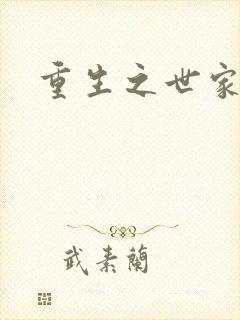 重生之世家
武素蘭